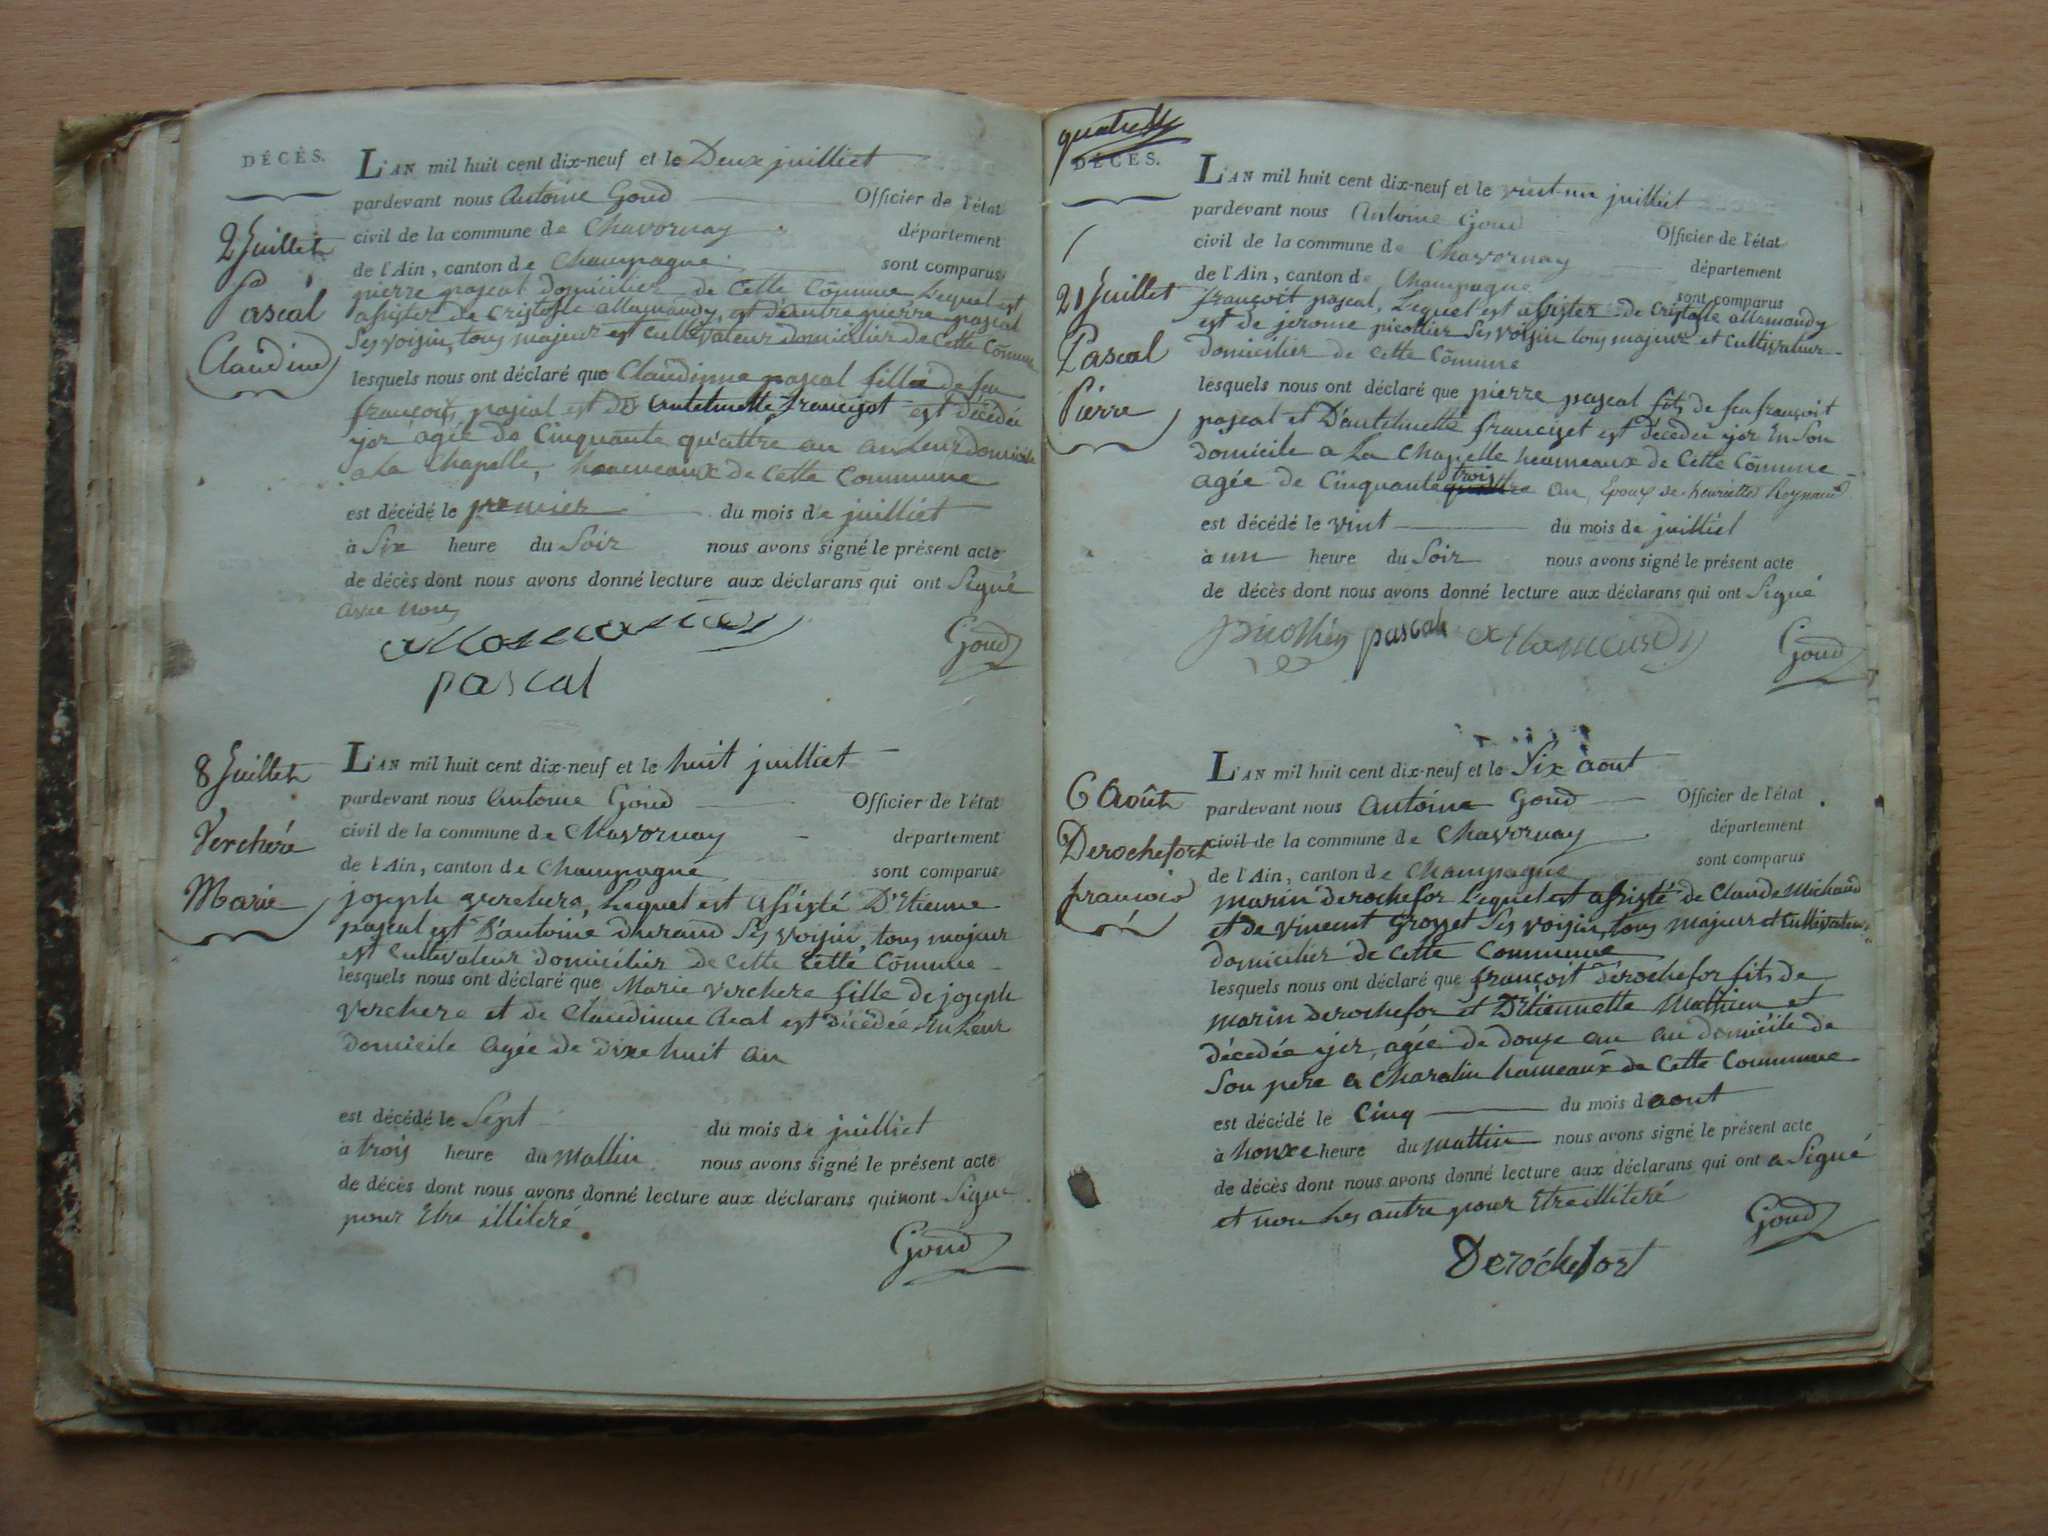 DÉCÈS.
2 Juillet
Pascal
Claudine
L'AN mil huit cent dix-neuf et le Deux juilliet
pardevant nous Antoine Goud Officier de l'état
civil de la commune de Chavornay département
de l'Ain, canton de Champagne sont comparus
pierre pascal domicilier de Cette Cõmune Lequel est
assister de Cristofle allemandy, est d'eautre pierre pascal
Ses voisin, tous majeur est cultivateur domicilier de Cette Cõmune
lesquels nous ont déclaré que Claudinne pascal fillie de feu
françois pascal est de antelmette francizot est décédée
ier agée de Cinquante quattre an au Leur domicile
a La Chapelle, hameaux de Cette Commune
est décédé le premier du mois de juilliet
à Six heure du Soir nous avons signé le présent acte
de décès dont nous avons donné lecture aux déclarans qui ont Signé
avec nous
allamandy Goud
pascal
8 Juillet
Verchère
Marie
L'AN mil huit cent dix-neuf et le huit juilliet
pardevant nous Antoine Goud Officier de l'état
civil de la commune de Chavornay département
de l'Ain, canton de Champagne sont comparus
joseph verchere, Lequel est assisté D'Etienne
pascal est d'antoine durand Ses voisin, tous majeur
est Cultivateur domicilier de Cette Cette Cõmune
lesquels nous ont déclaré que Marie verchere fille de joseph
verchere et de Claudinne Acal est décédée En Leur
domicile agée de dixe huit an
est décédé le Sept du mois de juilliet
à trois heure du Mattin nous avons signé le présent acte
de décès dont nous avons donné lecture aux déclarans qui nont Signe
pour Etre illiteré
Goud
DÉCÈS.
21 Juillet
Pascal
Pierre
L'AN mil huit cent dix-neuf et le vint-un juilliet
pardevant nous Antoine Goud Officier de l'état
civil de la commune de Chavornay département
de l'Ain, canton de Champagne sont comparus
françoit pascal, Lequel est assister de Cristofle allemandy
est de jerome picollier Ses voisin tous majeur et Cultivateur
domicilier de Cette Cõmune
lesquels nous ont déclaré que pierre pascal fils de feu françoit
pascal et D'antelmette francizet est décédée ier En Son
domicile a La Chapelle heameaux de Cette Cõmune
trois
agée de Cinquante quattre an, Epoux de henriette Reynaud
est décédé le vint du mois de juilliet
à un heure du Soir nous avons signé le présent acte
de décès dont nous avons donné lecture aux déclarans qui ont Signé
pascal allamandy Goud
6 Août
Derochefort
françois
L'AN mil huit cent dix-neuf et le Six aout
pardevant nous Antoine Goud Officier de l'état
civil de la commune de Chavornay département
de l'Ain, canton de Champagne sont comparus
marin derochefor Lequel est assisté de Claude Michaud
et de vincent Grosset Ses voisin, tous majeur et Cultivateur
domicilier de Cette Commune
lesquels nous ont déclaré que françoit derochefor fils de
marin derochefor et D'etiennette Mathieu et
décedée ier, agée de douze an au domicile de
Son pere a Charalin hameaux de Cette Commune
est décédé le Cinq du mois d aout
à honze heure du mattin nous avons signé le présent acte
de décès dont nous avons donné lecture aux déclarans qui ont a Signé
et non Les autre pour Etre illiteré
Goud
Derochefort